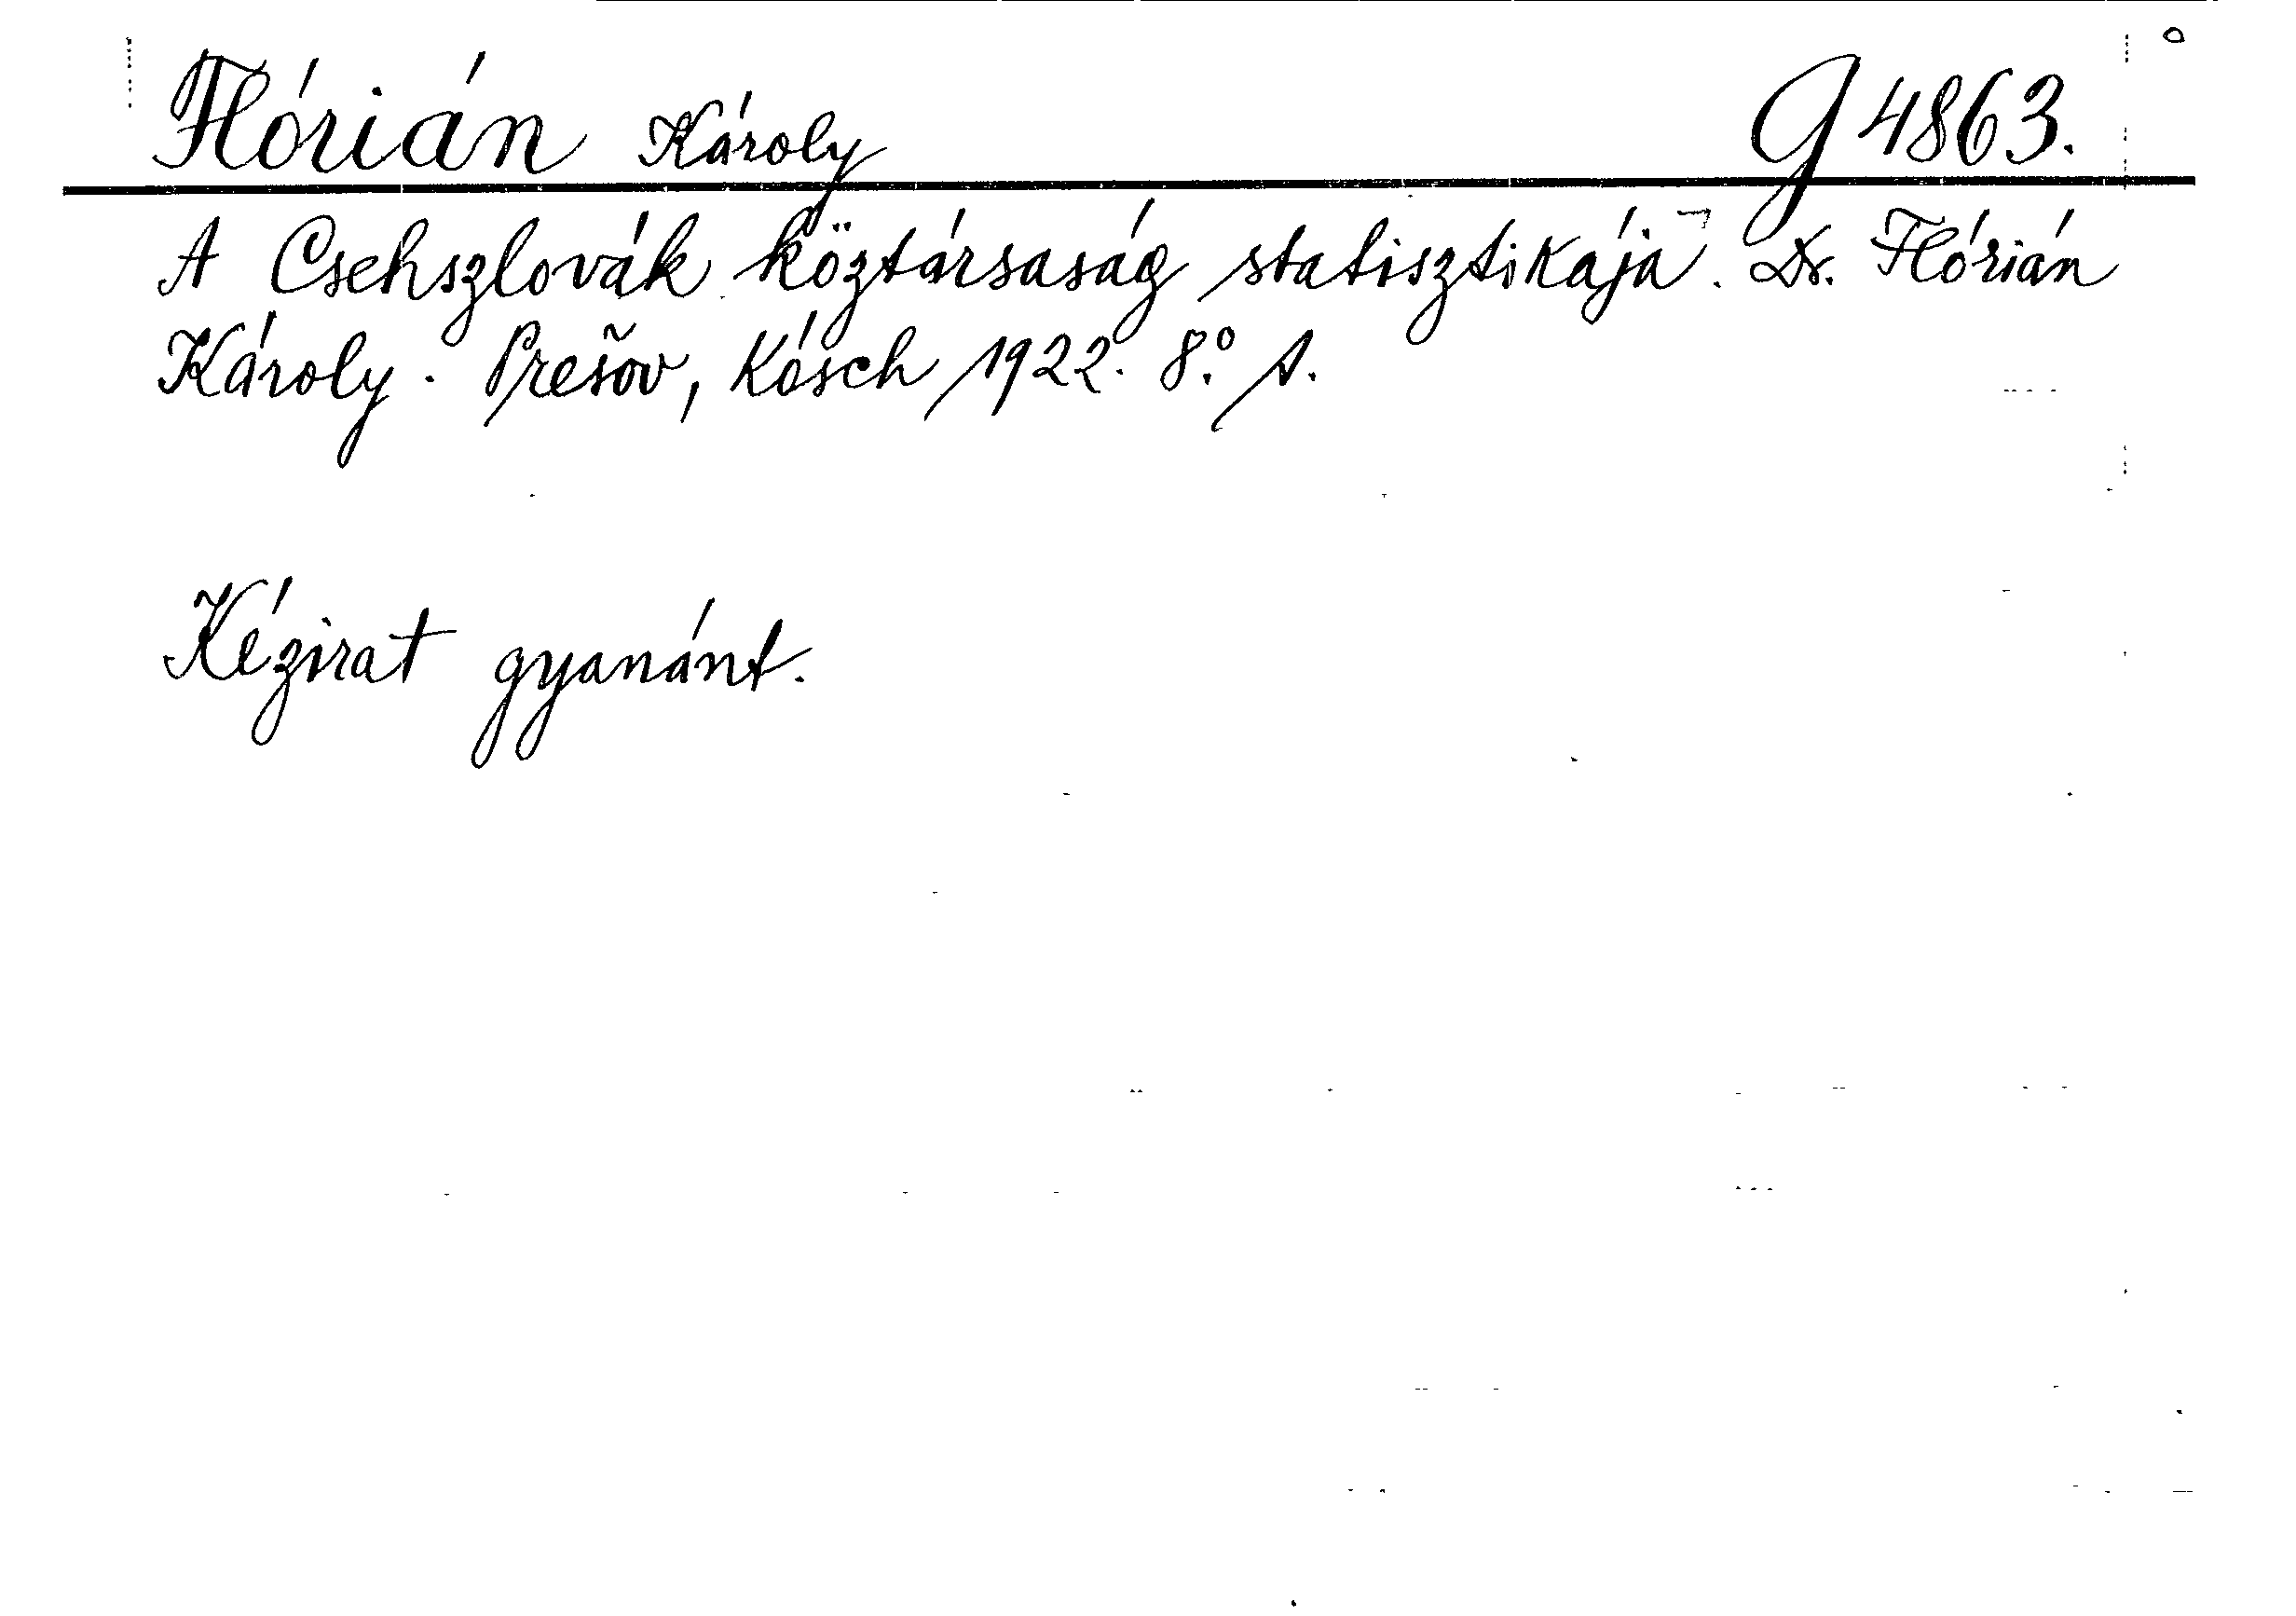 Flórián Károly G 4863.
A Csehszlovák köztársaság statisztikája. Dr. Flórián
Károly. Prešov, Kósch 1922. 8.°
Kézirat gyanánt.